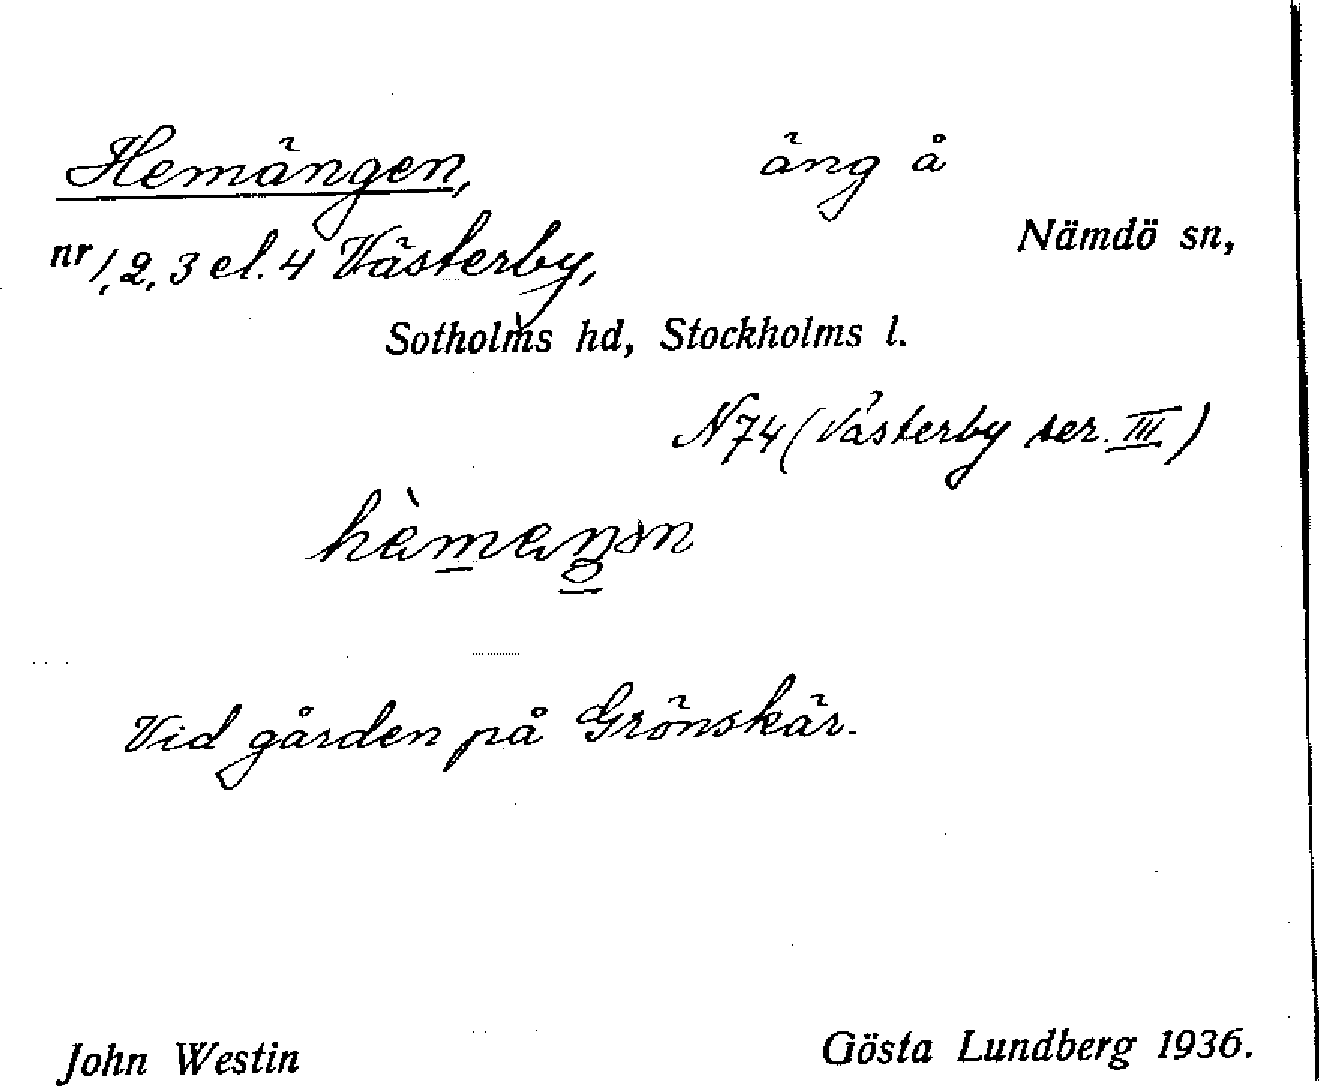 Hemängen, äng å
nr 1, 2, 3 el. 4 Västerby, Nämdö sn,
Sotholms hd, Stockholms l.
N74 (Västerby ter. III)
Vid gården på Grönskär.
John Westin Gösta Lundberg 1936.